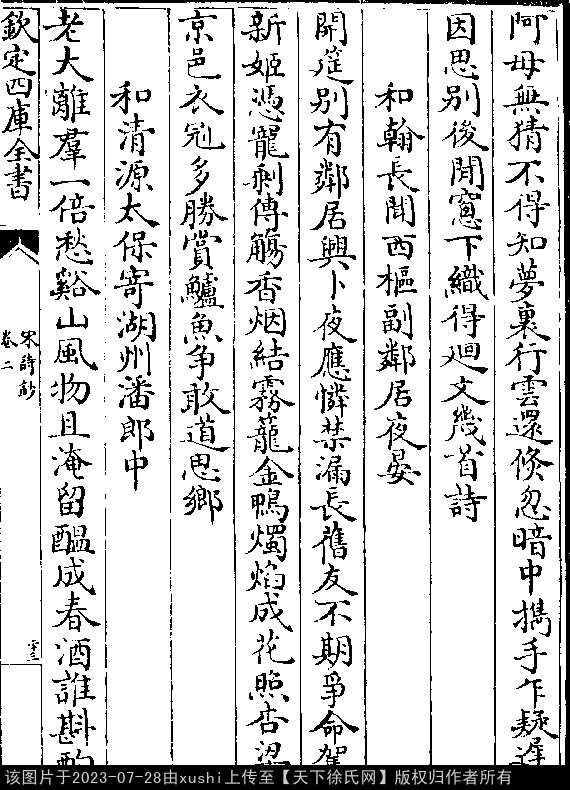 阿母無猜不得知夢裏行雲還倐忽暗中攜手乍疑遲
因思别後閒窻下織得廻文幾首詩
和翰長聞西樞副鄰居夜宴
開筵别有鄰居興卜夜應憐禁漏長舊友不期爭命駕
新姬憑寵剩傳觴香烟結霧籠金鴨燭焰成花照杏梁
京邑衣冠多勝賞鱸魚爭敢道思鄉
和清源太保寄湖州潘郎中
老大離羣一倍愁谿山風物且淹留醖成春酒誰斟酌
欽定四庫全書
宋詩鈔
卷二
該图片于2023-07-28由xushi上传至【天下徐氏网】版权归作者所有